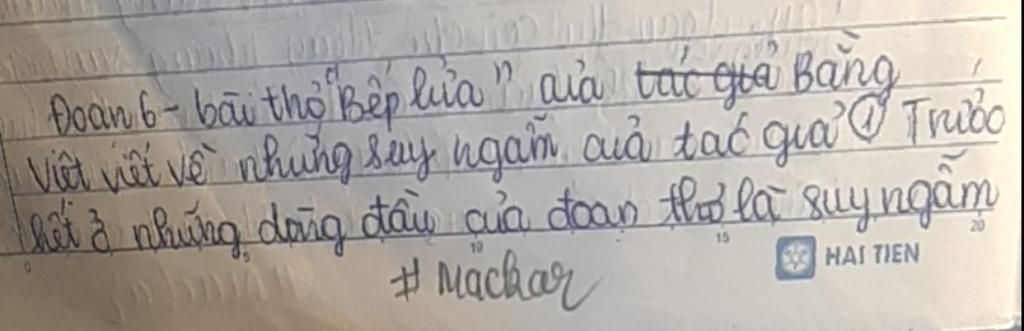 Đoạn 6 - bài thơ "Bếp lửa" của tác giả Bằng
Việt viết về những suy ngẫm của tác giả ① Trước
hết ở những dòng đầu của đoạn thơ là suy ngẫm
5 10 15 20
HAI TIEN
# Mackar